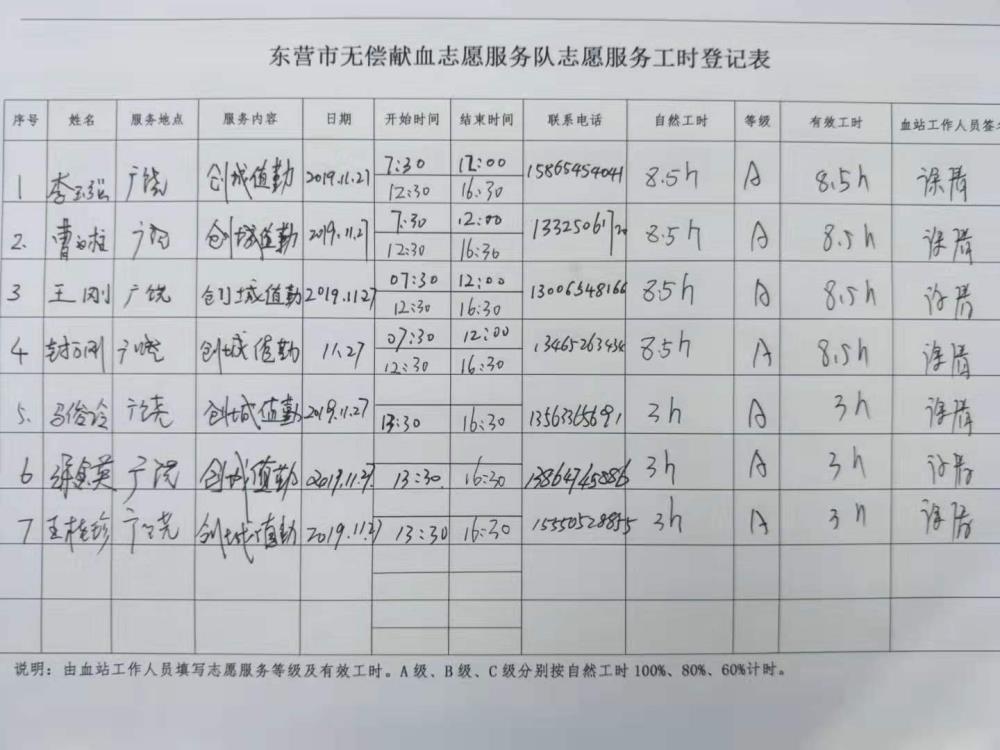 东营市无偿献血志愿服务队志愿服务工时登记表
序号 姓名 服务地点 服务内容 日期 开始时间 结束时间 联系电话 自然工时 等级 有效工时 血站工作人员签
1 李玉强 广饶 创城值勤 2019.11.27 7:30 12:00 15865454041 8.5h A 8.5h 涂清
12:30 16:30
2. 曹 广饶 创城值勤 2019.11.27 7:30 12:00 133250617 8.5h A 8.5h 涂清
12:30 16:30
3 王刚 广饶 创城值勤 2019.1127 07:30 12:00 13006548166 8.5h A 8.5h 涂清
12:30 16:30
4 刚 广饶 创城值勤 11.27 07:30 12:00 13465263434 8.5h A 8.5h 涂清
12:30 16:30
5. 马俊玲 广饶 创城值勤 2019.11.27 13:30 16:30 13563365691 3h A 3h 涂清
6 英 广饶 创城值勤 2019.11.27 13:30. 16:30 13864745886 3h A 3h 涂清
7 王桂珍 广饶 创城值勤 2019.11.27 13:30 16:30 15550528855 3h A 3h 涂清
说明：由血站工作人员填写志愿服务等级及有效工时。A级、B级、C级分别按自然工时100%、80%、60%计时。